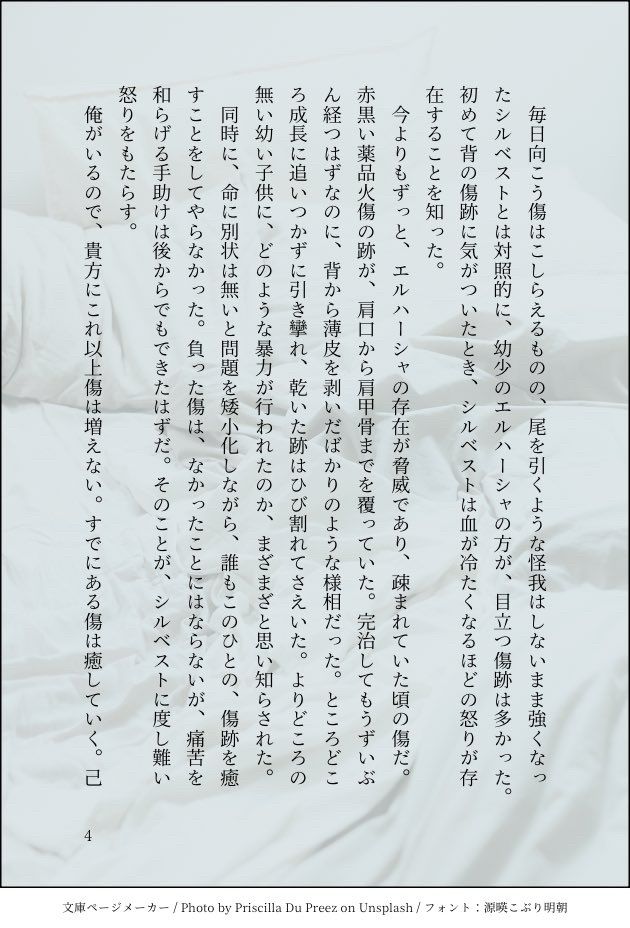 毎日向こう傷はこしらえるものの、尾を引くような怪我はしないまま強くなっ
たシルベストとは対照的に、幼少のエルハーシャの方が、目立つ傷跡は多かった。
初めて背の傷跡に気がついたとき、シルベストは血が冷たくなるほどの怒りが存
在することを知った。
　今よりもずっと、エルハーシャの存在が脅威であり、疎まれていた頃の傷だ。
赤黒い薬品火傷の跡が、肩口から肩甲骨までを覆っていた。完治してもうずいぶ
ん経つはずなのに、背から薄皮を剥いだばかりのような様相だった。ところどこ
ろ成長に追いつかずに引き攣れ、乾いた跡はひび割れてさえいた。よりどころの
無い幼い子供に、どのような暴力が行われたのか、まざまざと思い知らされた。
　同時に、命に別状は無いと問題を矮小化しながら、誰もこのひとの、傷跡を癒
すことをしてやらなかった。負った傷は、なかったことにはならないが、痛苦を
和らげる手助けは後からでもできたはずだ。そのことが、シルベストに度し難い
怒りをもたらす。
　俺がいるので、貴方にこれ以上傷は増えない。すでにある傷は癒していく。己
4
文庫ページメーカー / Photo by Priscilla Du Preez on Unsplash / フォント：源暎こぶり明朝